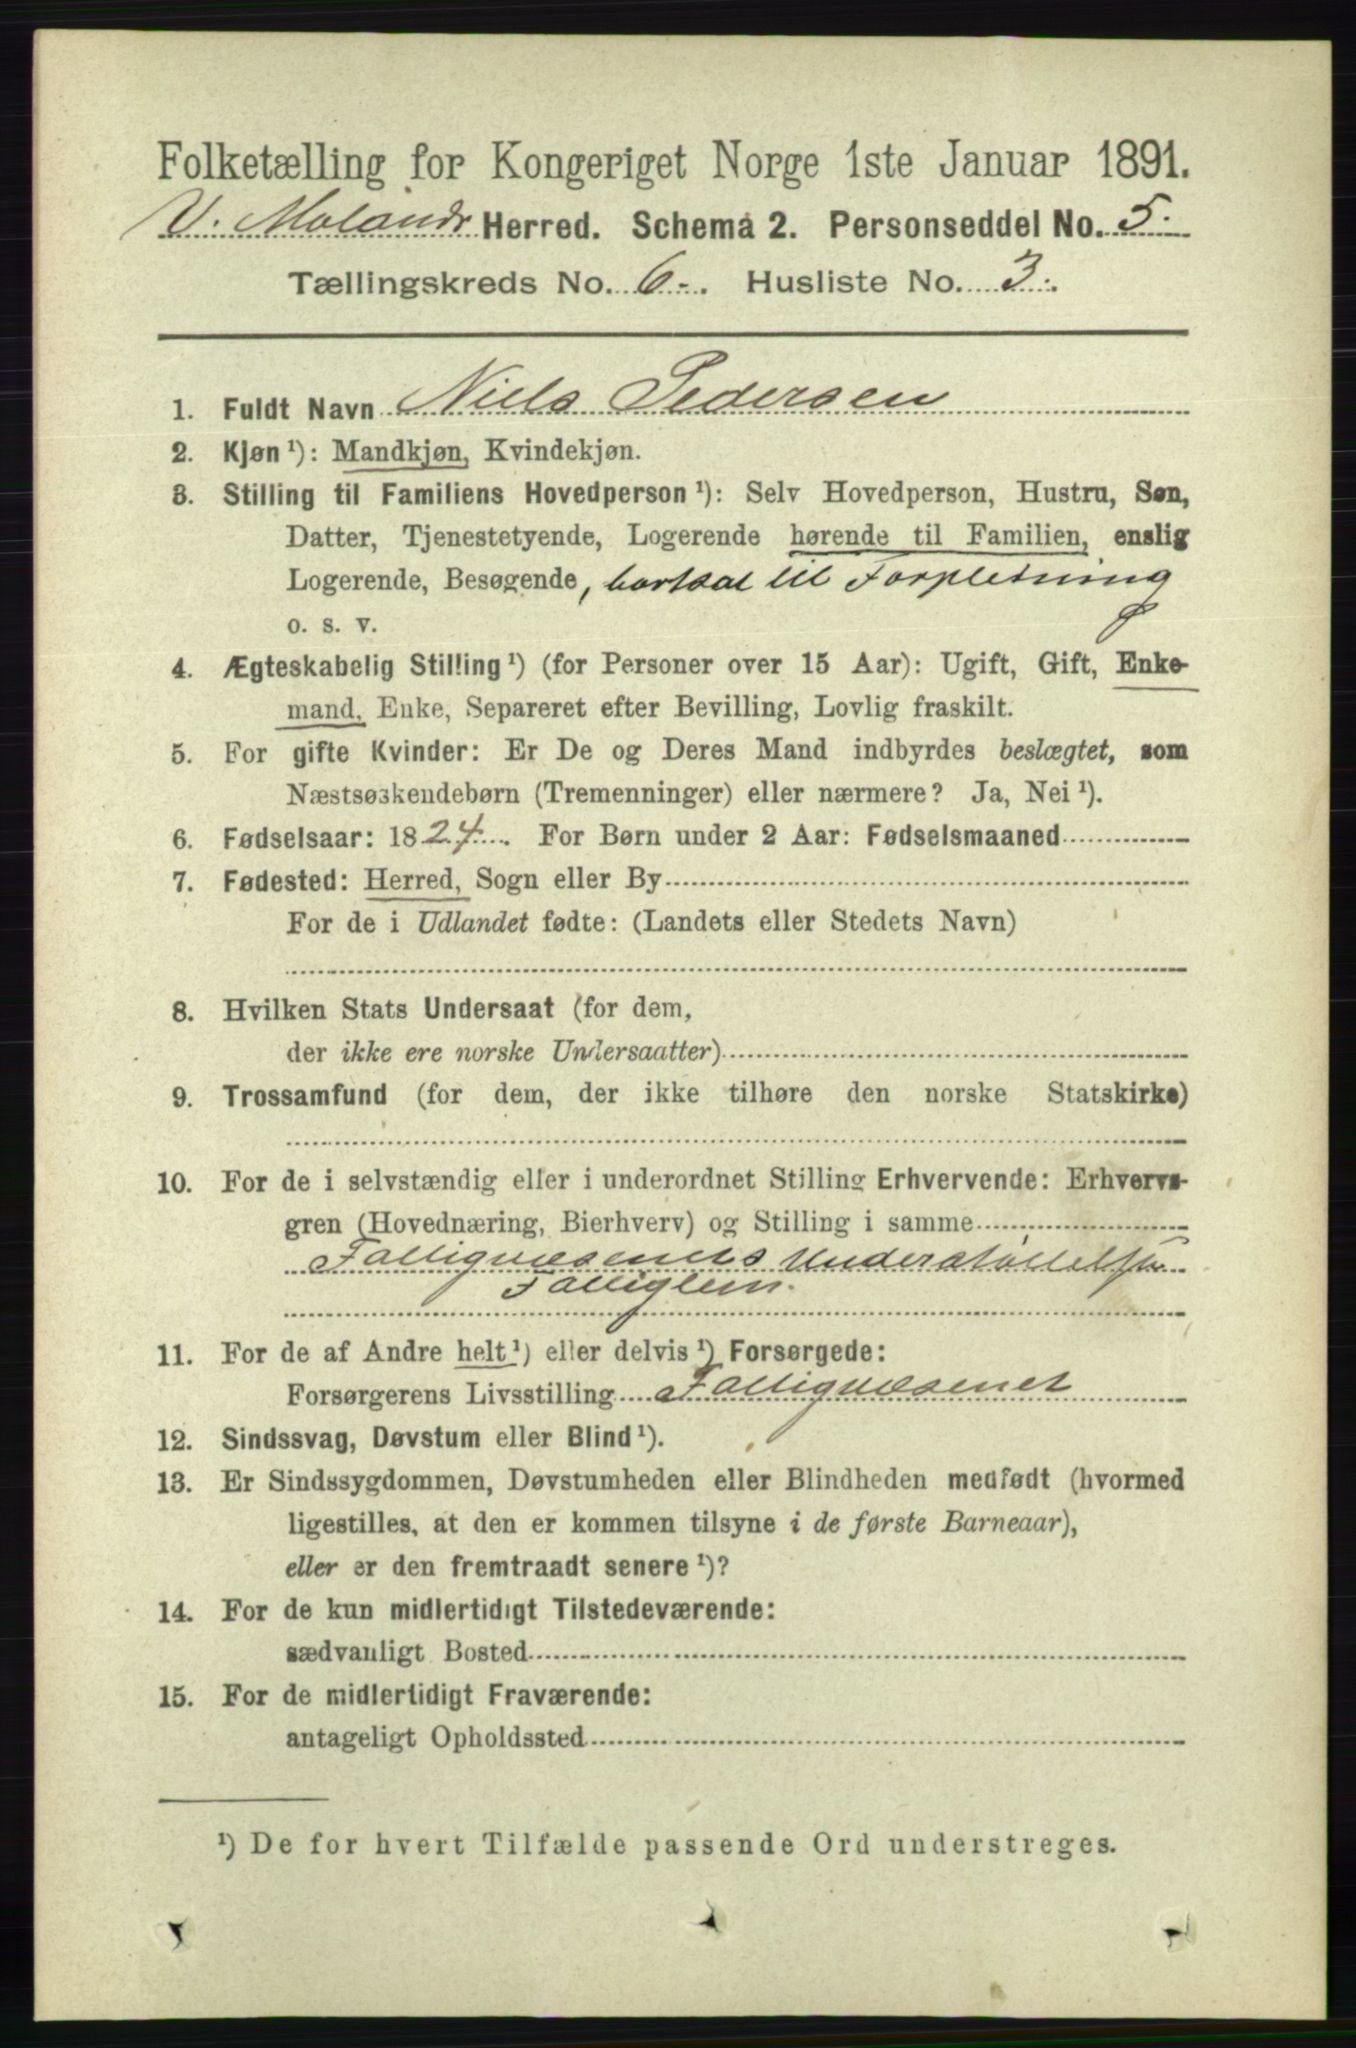 Folketælling for Kongeriget Norge 1ste Januar 1891.
V. Molands Herred. Schema 2. Personseddel No. 5.
Tællingskreds No. 6. Husliste No. 3.
1. Fuldt Navn Niels Pedersen
2. Kjøn ¹): Mandkjøn, Kvindekjøn.
3. Stilling til Familiens Hovedperson ¹): Selv Hovedperson, Hustru, Søn,
Datter, Tjenestetyende, Logerende hørende til Familien, enslig
Logerende, Besøgende, bortsat til Forpletning
o. s. v.
4. Ægteskabelig Stilling ¹) (for Personer over 15 Aar): Ugift, Gift, Enke-
mand, Enke, Separeret efter Bevilling, Lovlig fraskilt.
5. For gifte Kvinder: Er De og Deres Mand indbyrdes beslægtet, som
Næstsøskendebørn (Tremenninger) eller nærmere? Ja, Nei ¹).
6. Fødselsaar: 1824. For Børn under 2 Aar: Fødselsmaaned
7. Fødested: Herred, Sogn eller By
For de i Udlandet fødte: (Landets eller Stedets Navn)
8. Hvilken Stats Undersaat (for dem,
der ikke ere norske Undersaatter)
9. Trossamfund (for dem, der ikke tilhøre den norske Statskirke)
10. For de i selvstændig eller i underordnet Stilling Erhvervende: Erhvervs-
gren (Hovednæring, Bierhverv) og Stilling i samme
Fattigvæsenets
Fattiglem.
11. For de af Andre helt ¹) eller delvis ¹) Forsørgede:
Forsørgerens Livsstilling Fattigvæsenet
12. Sindssvag, Døvstum eller Blind ¹).
13. Er Sindssygdommen, Døvstumheden eller Blindheden medfødt (hvormed
ligestilles, at den er kommen tilsyne i de første Barneaar),
eller er den fremtraadt senere ¹)?
14. For de kun midlertidigt Tilstedeværende:
sædvanligt Bosted
15. For de midlertidigt Fraværende:
antageligt Opholdssted
¹) De for hvert Tilfælde passende Ord understreges.